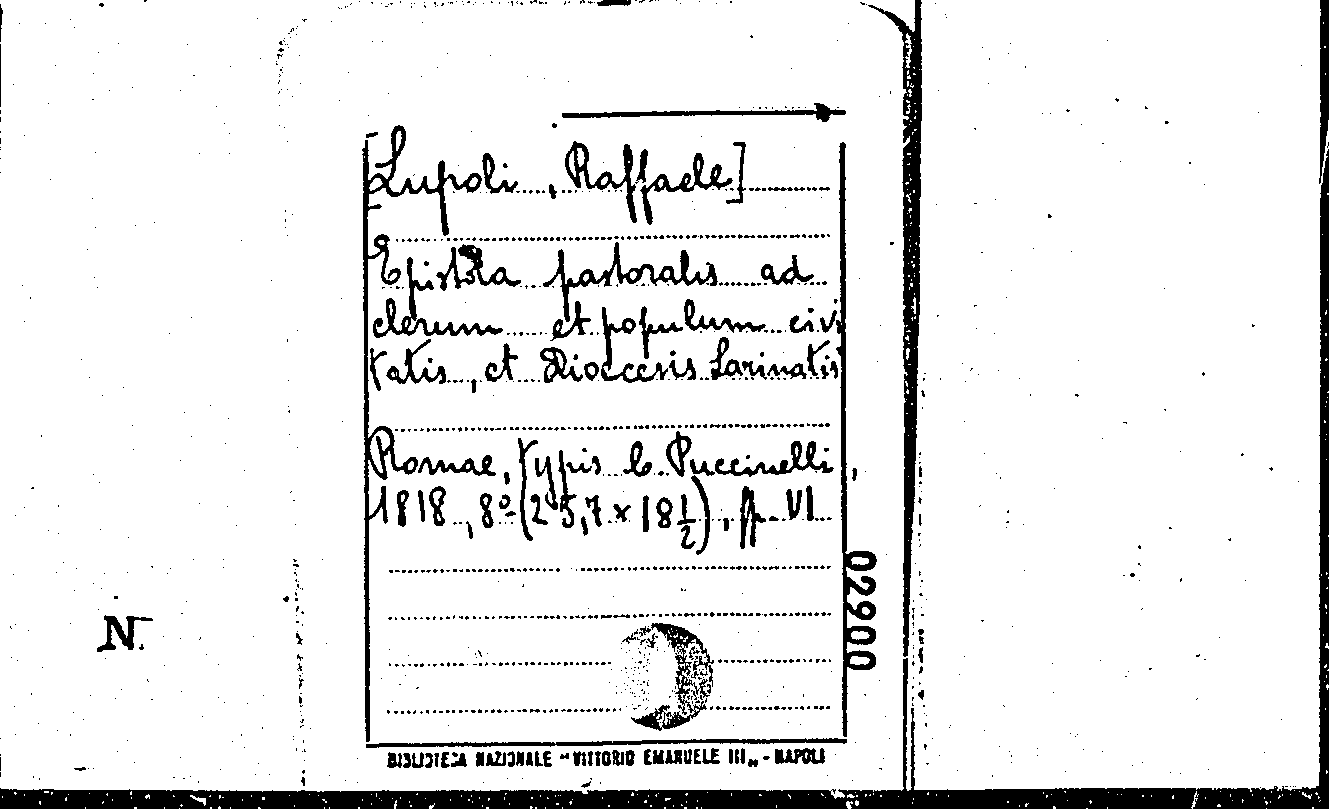 [Lupoli, Raffaele]
Epistola pastoralis ad
clerum et populum civi
tatis, et Dioecesis Larinatis
Romae, typis C. Puccinelli,
1818, 8º (25,7 x 18 1/2), pp. VI
02900
N.
BIBLIOTECA NAZIONALE "VITTORIO EMANUELE III„ - NAPOLI